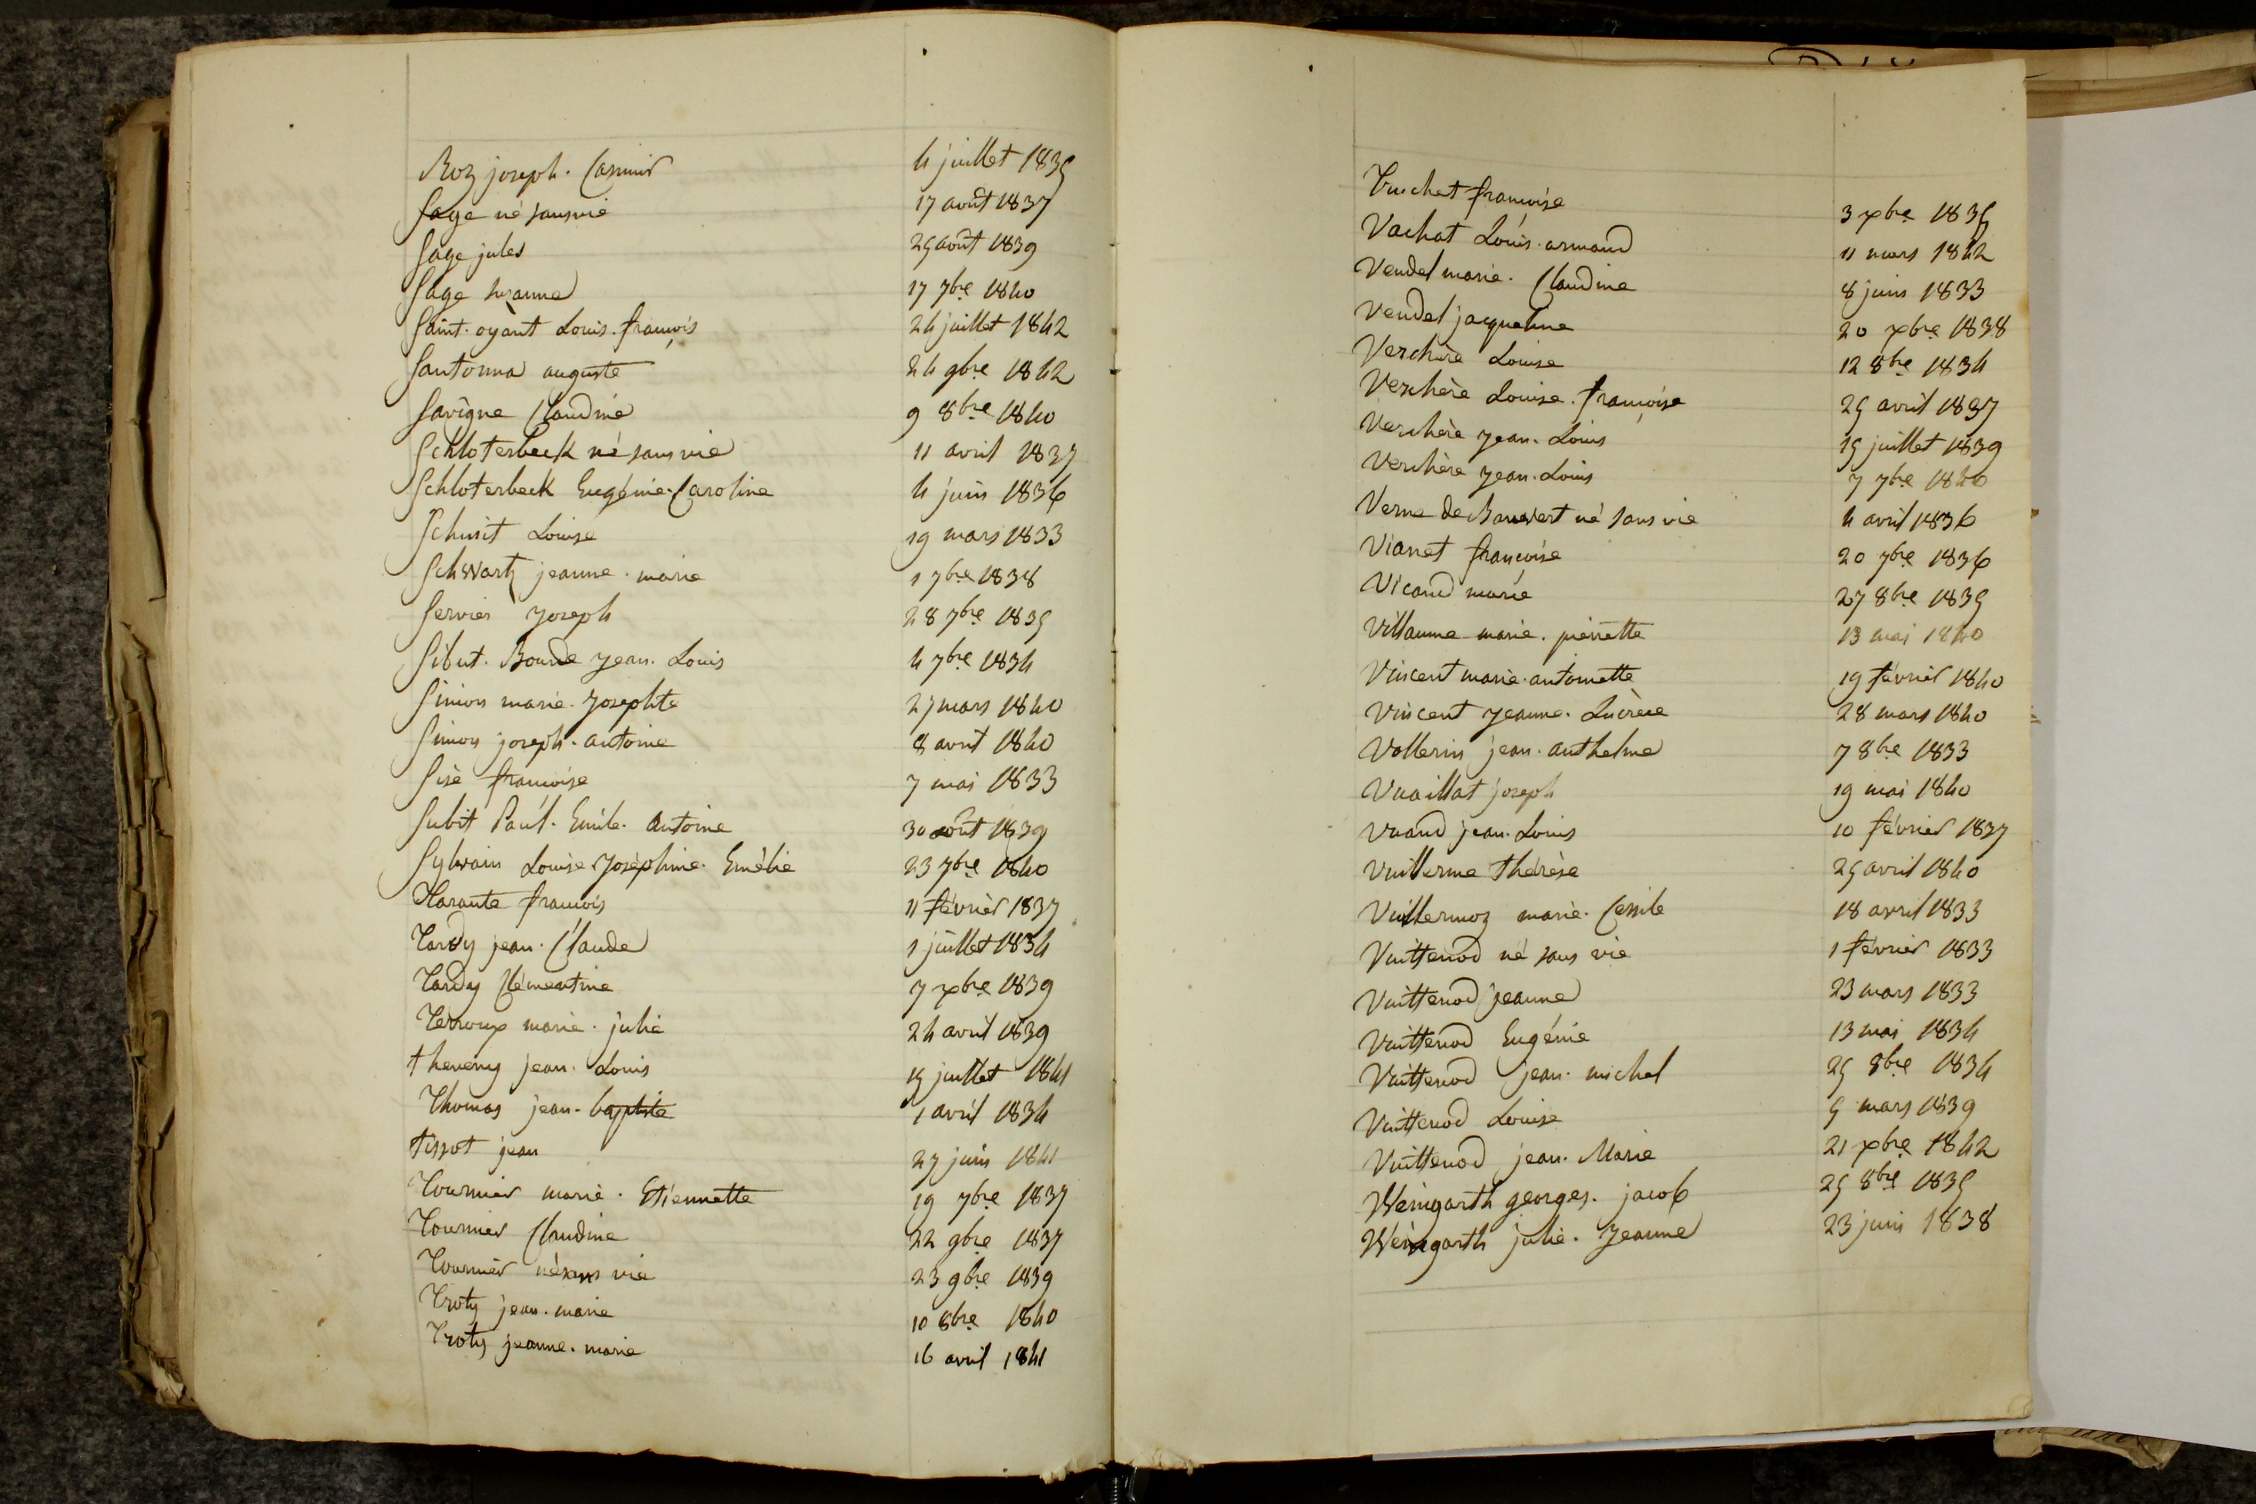 Roz joseph. Casimir 4 juillet 1835
Sage né sans vie 17 août 1837
Sage jules 25 août 1839
Sage Susanne 17 7bre 1840
Saint-oyant Louis. françois 24 juillet 1842
Santonna auguste 24 9bre 1842
Savigne Claudine 9 8bre 1840
Schloterbeck né sans vie 11 avril 1837
Schloterbeck Eugénie. Caroline 4 juin 1836
Louise 19 mars 1833
Schwartz jeanne. marie 1 7bre 1838
Servier Joseph 28 7bre 1835
Sibut. Bourde Jean. Louis 4 7bre 1834
Simon marie. Josephte 27 mars 1840
Simon joseph. antoine 8 avril 1840
françoise 7 mai 1833
Subit Paul. Emile. Antoine 30 août 1839
Sylvain Louise Joséphine. Emélie 23 7bre 1840
Tarante francois 11 février 1837
Tardy jean. Claude 1 juillet 1834
Tardy Clémentine 7 xbre 1839
Terroux marie. julie 24 avril 1839
theveny jean. Louis 15 juillet 1841
Thomas jean. baptiste 1 avril 1834
tissot jean 27 juin 1841
Tournier marie. Etiennette 19 7bre 1837
Tournier Claudine 22 9bre 1837
Tournier né sans vie 23 9bre 1839
Troty jean. marie 10 8bre 1840
Troty jeanne. marie 16 avril 1841
Truchet françoise 3 xbre 1835
Vachat Louis. armand 11 mars 1842
Vendel marie. Claudine 8 juin 1833
Vendel jacqueline 20 xbre 1838
Verchère Louise 12 8bre 1834
Verchère Louise. françoise 25 avril 1837
Verchère Jean. Louis 15 juillet 1839
Verchère Jean. Louis 7 7bre 1840
Verne de né sans vie 4 avril 1836
Vianet françoise 20 7bre 1836
Vicard marie 27 8bre 1835
Villaume marie. pierrette 13 mai 1840
Vincent marie. antoinette 19 février 1840
Vincent Jeanne. Lucrèce 28 mars 1840
Vollerin jean. anthelme 7 8bre 1833
Vuaillat joseph 19 mai 1840
Vuand jean. Louis 10 février 1837
Vuillerme thérèse 25 avril 1840
Vuillermoz marie. Cecile 18 avril 1833
Vuittenod né sans vie 1 février 1833
Vuittenod jeanne 23 mars 1833
Vuittenod Eugénie 13 mai 1834
Vuittenod jean. michel 25 8bre 1834
Vuittenod Louise 5 mars 1839
Vuittenod jean. Marie 21 xbre 1842
Weingarth georges. jacob 25 8bre 1835
Weingarth julie. Jeanne 23 juin 1838